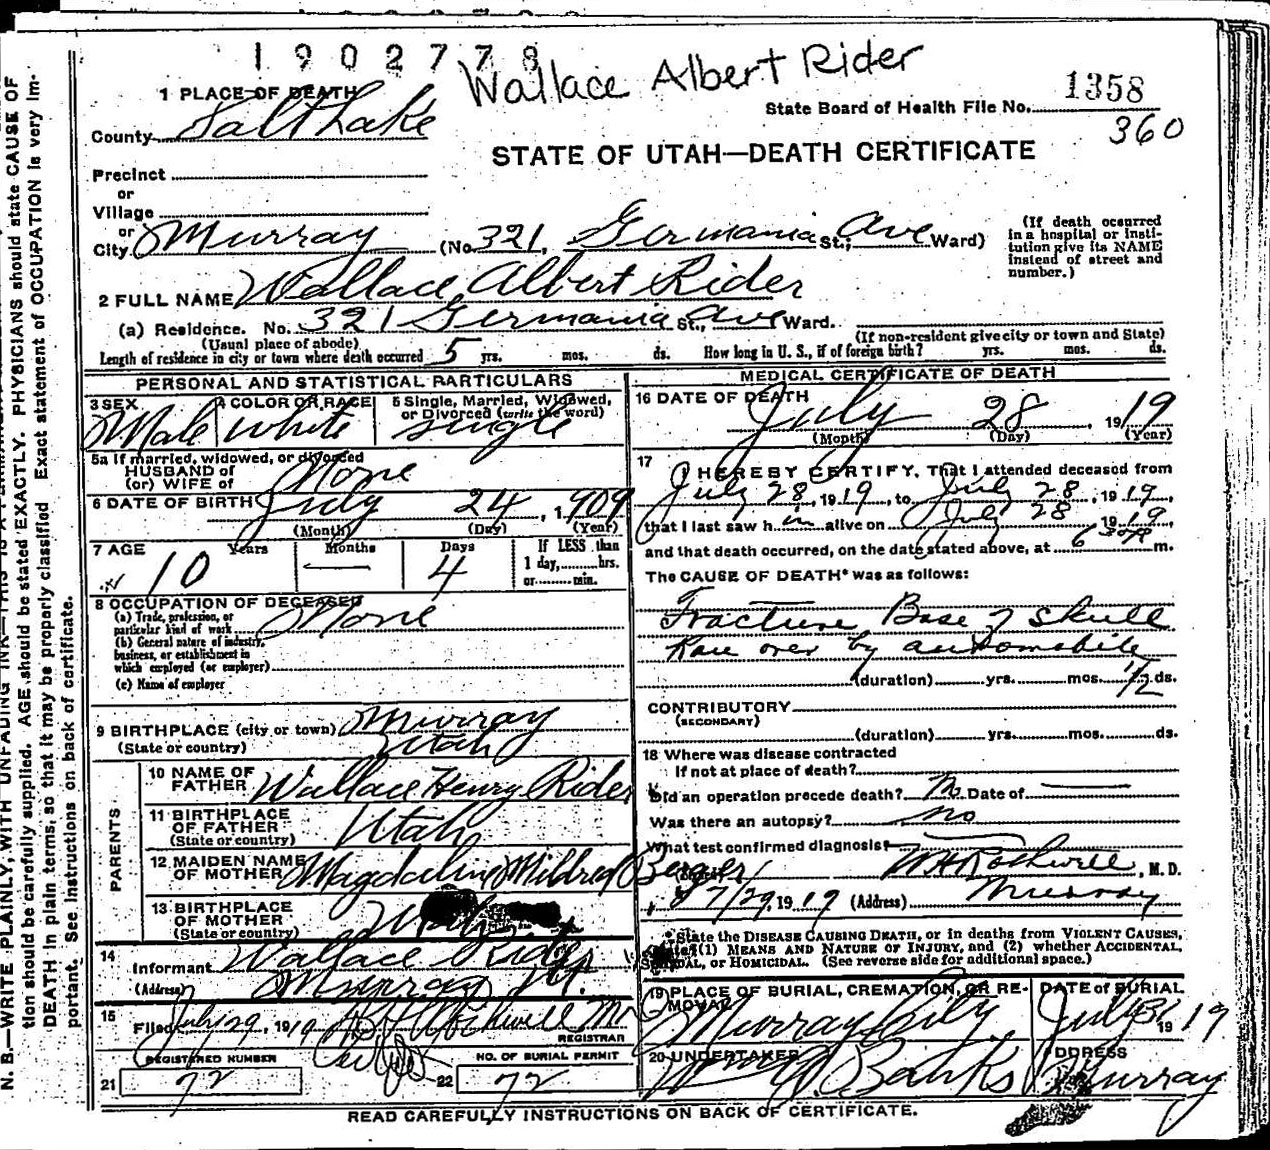 1902778
Wallace Albert Rider
1 PLACE OF DEATH
County Salt Lake
State Board of Health File No. 1358
360
STATE OF UTAH—DEATH CERTIFICATE
Precinct
or
Village
or
City Murray (No. 321, Germania St.; Ave Ward)
(If death occurred in a hospital or institution give its NAME instead of street and number.)
2 FULL NAME Wallace Albert Rider
(a) Residence. No. 321 Germania St., Ave Ward.
(Usual place of abode) (If non-resident give city or town and State)
Length of residence in city or town where death occurred 5 yrs. mos. ds. How long in U. S., if of foreign birth? yrs. mos. ds.
PERSONAL AND STATISTICAL PARTICULARS
3 SEX Male
4 COLOR OR RACE white
5 Single, Married, Widowed, or Divorced (write the word) single
5a If married, widowed, or divorced
HUSBAND of
(or) WIFE of None
6 DATE OF BIRTH July 24, 1909
(Month) (Day) (Year)
7 AGE Years Months Days If LESS than
10 — 4 1 day,......hrs.
or......min.
8 OCCUPATION OF DECEASED
(a) Trade, profession, or
particular kind of work None
(b) General nature of industry,
business, or establishment in
which employed (or employer)
(c) Name of employer
9 BIRTHPLACE (city or town) Murray
(State or country) Utah
PARENTS
10 NAME OF FATHER Wallace Henry Rider
11 BIRTHPLACE OF FATHER (State or country) Utah
12 MAIDEN NAME OF MOTHER Mildred Berger
13 BIRTHPLACE OF MOTHER (State or country)
14 Informant Wallace Rider
(Address) Murray Ut.
15 Filed July 29, 1919
REGISTRAR
REGISTERED NUMBER
21 72
NO. OF BURIAL PERMIT
22 72
MEDICAL CERTIFICATE OF DEATH
16 DATE OF DEATH
July 28, 1919
(Month) (Day) (Year)
17 I HEREBY CERTIFY, That I attended deceased from
July 28, 1919, to July 28, 1919,
that I last saw h im alive on July 28 1919,
and that death occurred, on the date stated above, at 6 30 P m.
The CAUSE OF DEATH* was as follows:
Fracture Base of Skull
Ran over by automobile
(duration) yrs. mos. 1/2 ds.
CONTRIBUTORY
(SECONDARY)
(duration) yrs. mos. ds.
18 Where was disease contracted
If not at place of death?
Did an operation precede death? No Date of —
Was there an autopsy? no
What test confirmed diagnosis?
W H Rothwell, M. D.
7/29, 1919 (Address) Murray
*State the DISEASE CAUSING DEATH, or in deaths from VIOLENT CAUSES,
state (1) MEANS AND NATURE OF INJURY, and (2) whether ACCIDENTAL,
SUICIDAL, or HOMICIDAL. (See reverse side for additional space.)
19 PLACE OF BURIAL, CREMATION, OR REMOVAL DATE of BURIAL
Murray City July 31 1919
20 UNDERTAKER ADDRESS
Banks Murray
READ CAREFULLY INSTRUCTIONS ON BACK OF CERTIFICATE.
N. B.—WRITE PLAINLY, WITH UNFADING INK—THIS IS A
tion should be carefully supplied. AGE should be stated EXACTLY. PHYSICIANS should state CAUSE OF
DEATH in plain terms, so that it may be properly classified. Exact statement of OCCUPATION is very im-
portant. See instructions on back of certificate.